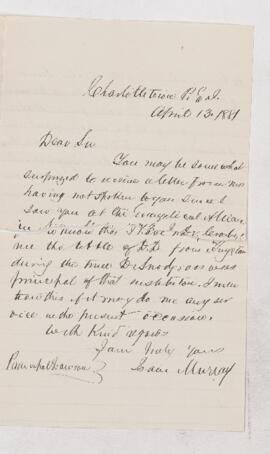 Charlottetown P. E. I.
April 13 1881
Dear Sir
You may be somewhat
surprised to receive a letter from me
having not spoken to you since I
saw you at the Evangelical Alliance
in
me the title of D.D. from Kingston
during the time Dr Snodgrass was
principal of that institution. I men
tion this if it may do me any ser
vice in the present occasion.
With Kind regards
I am Truly Yours
Isaac Murray
Principal Dawson